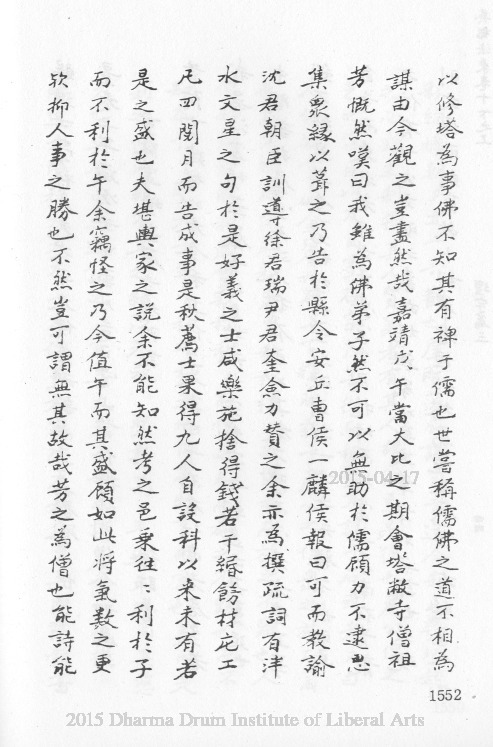 以修塔為事佛不知其有裨于儒也世嘗稱儒佛之道不相為
謀由今觀之豈盡然哉嘉靖戊午當大比之期會塔敝寺僧祖
芳慨然嘆曰我雖為佛弟子然不可以無助於儒顧力不逮思
集衆縁以葺之乃告於縣令安丘曹侯一麟侯報曰可而教諭
沈君朝臣訓導徐君瑞尹君奎僉力賛之余亦為撰疏詞有泮
水文星之句於是好義之士咸樂施捨得錢若干緡餝材庀工
凡四閱月而告成事是秋薦士果得九人自設科以来未有若
是之盛也夫堪輿家之説余不能知然考之邑乗往〻利於子
而不利於午余竊怪之乃今值午而其盛顧如此将氣數之更
欤抑人事之勝也不然豈可謂無其故哉芳之為僧也能詩能
2015-04-17
1552
2015 Dharma Drum Institute of Liberal Arts